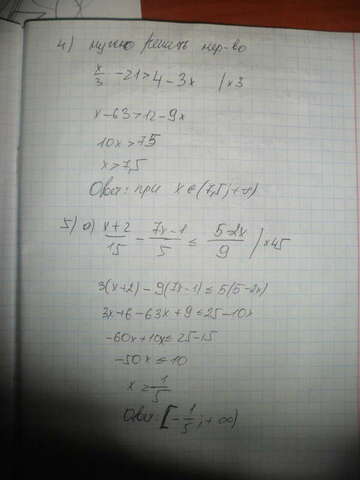 4) нужно решить нер-во
x/3 - 21 > 4 - 3x | ×3
x - 63 > 12 - 9x
10x > 75
x > 7,5
Ответ: при x ∈ (7,5; +∞)
5) а) (x+2)/15 - (7x-1)/5 ≤ (5-2x)/9 | ×45
3(x+2) - 9(7x-1) ≤ 5(5-2x)
3x + 6 - 63x + 9 ≤ 25 - 10x
-60x + 10x ≤ 25 - 15
-50x ≤ 10
x ≥ -1/5
Ответ: [-1/5; +∞)